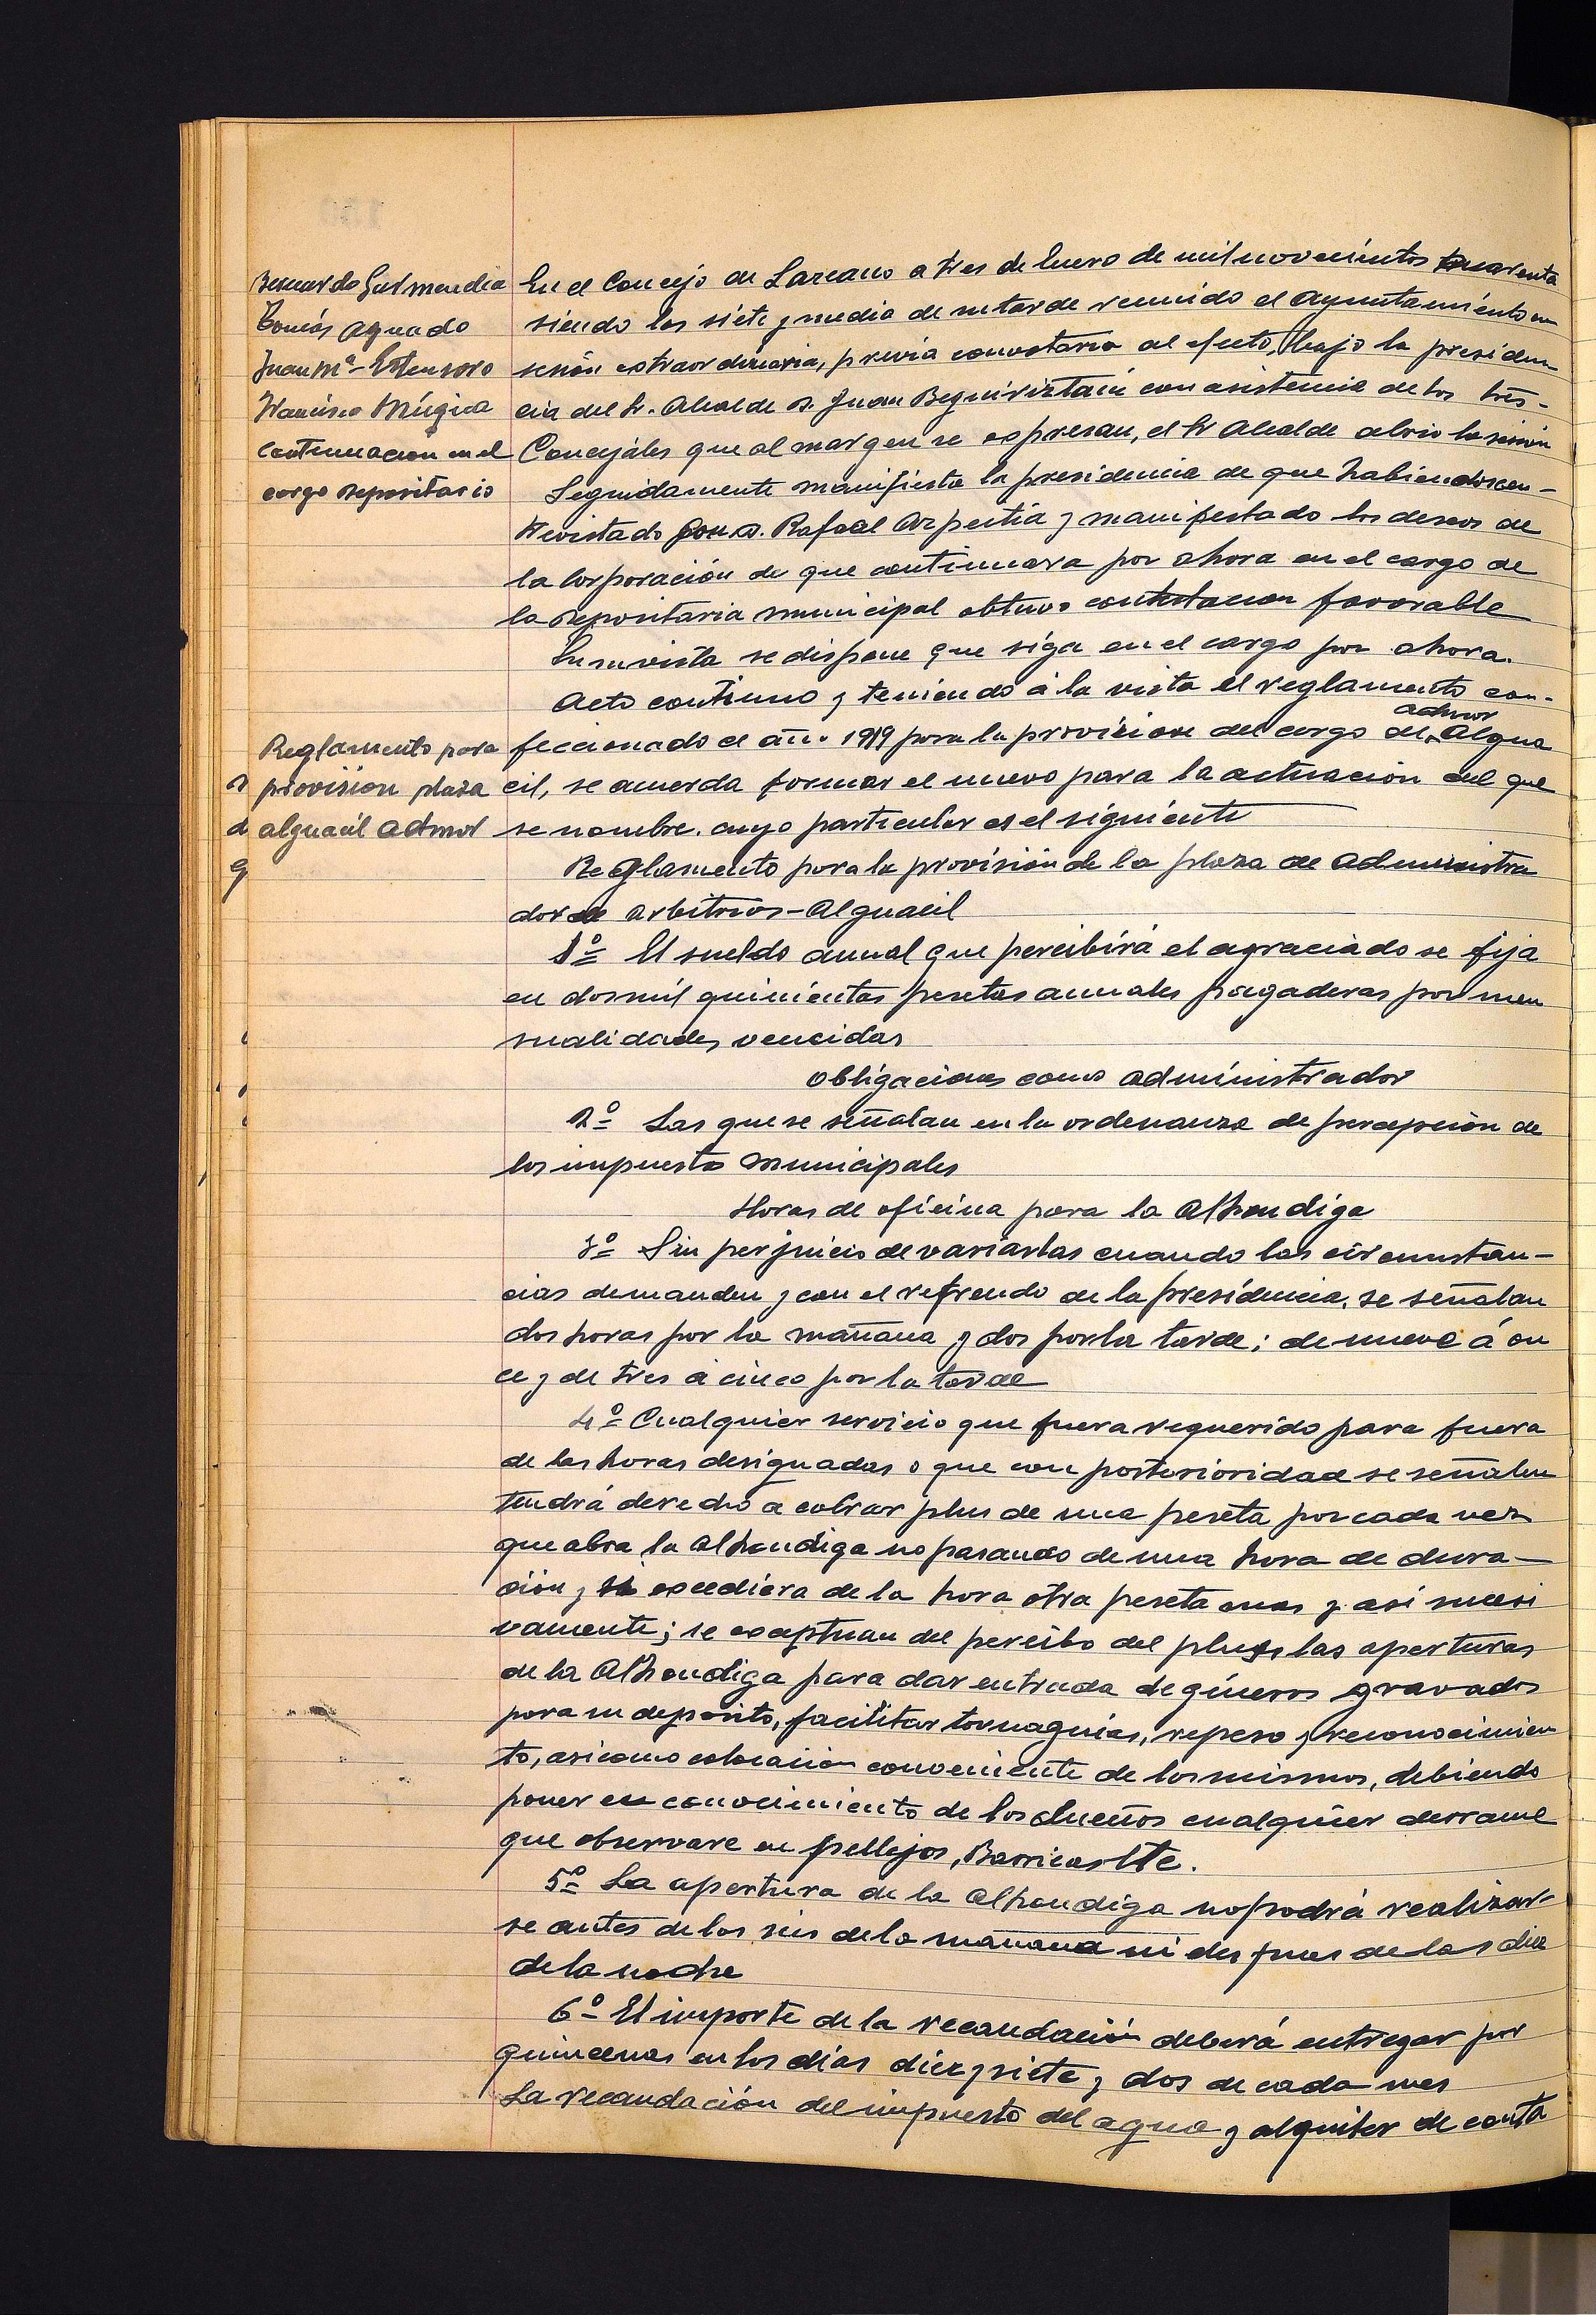 Bernardo Garmendia
Tomás Aguado
Juan Mª Estensoro
Francisco Múgica
continuacion en el
cargo depositario
En el Concejo de Lazcano a tres de Enero de mil novecientos cuarenta
siendo las siete y media de su tarde reunido el Ayuntamiento en
sesión extraordinaria, previa convotaria al efecto, bajo la presiden
cia del Sr. Alcalde D. Juan Beguiristain con asistencia de los tres-
Concejales que al margen se expresan, el Sr Alcalde abrio la sesión
Seguidamente manifiesta la presidencia de que habiendose en-
trevistado con D. Rafael Azpeitia y manifestado los deseos de
la Corporación de que continuara por ahora en el cargo de
la depositaria municipal obtuvo contestacion favorable
En su vista se dispone que siga en el cargo por ahora.
Acto continuo y teniendo á la vista el reglamento con-
Reglamento para
provision plaza
alguacil Admor
feccionado el año 1919 para la provision del cargo de Admor Algua
cil, se acuerda formar el nuevo para la actuación del que
se nombre. cuyo particular es el siguiente
Reglamento para la provisión de la plaza de Administra
dor de Arbitrios-Alguacil
1º El sueldo anual que percibirá el agraciado se fija
en dos mil quinientas pesetas anuales pagaderas por men
sualidades vencidas
Obligaciones como Administrador
2º Las que se señalan en la ordenanza de percepción de
los impuesto municipales
Horas de oficina para la Alhondiga
3º Sin perjuicio de variarlas cuando las circunstan-
cias demanden y con el refrendo de la presidencia, se señalan
dos horas por la mañana y dos por la tarde; de nueve á on
ce y de tres á cinco por la tarde
4º Cualquier servicio que fuera requerido para fuera
de las horas designadas o que con posterioridad se señalen
tendrá derecho a cobrar plus de una peseta por cada vez
que abra la Alhondiga no pasando de una hora de dura-
ción y si excediera de la hora otra peseta mas y asi sucesi
vamente; se exceptuan del percibo del plus las aperturas
de la Alhondiga para dar entrada de géneros gravados
para su deposito, facilitar tornaguias, repeso y reconocimien
to, asi como colocación conveniente de los mismos, debiendo
poner en conocimiento de los dueños cualquier derrame
que observare en pellejos, Barricas Etc.
5º La apertura de la Alhondiga no podrá realizar-
se antes de las seis de la mañana ni despues de las diez
de la noche
6º El importe de la recaudación deberá entregar por
quincenas en los dias diez y siete y dos de cada mes
La recaudación del impuesto del agua y alquiler de conta